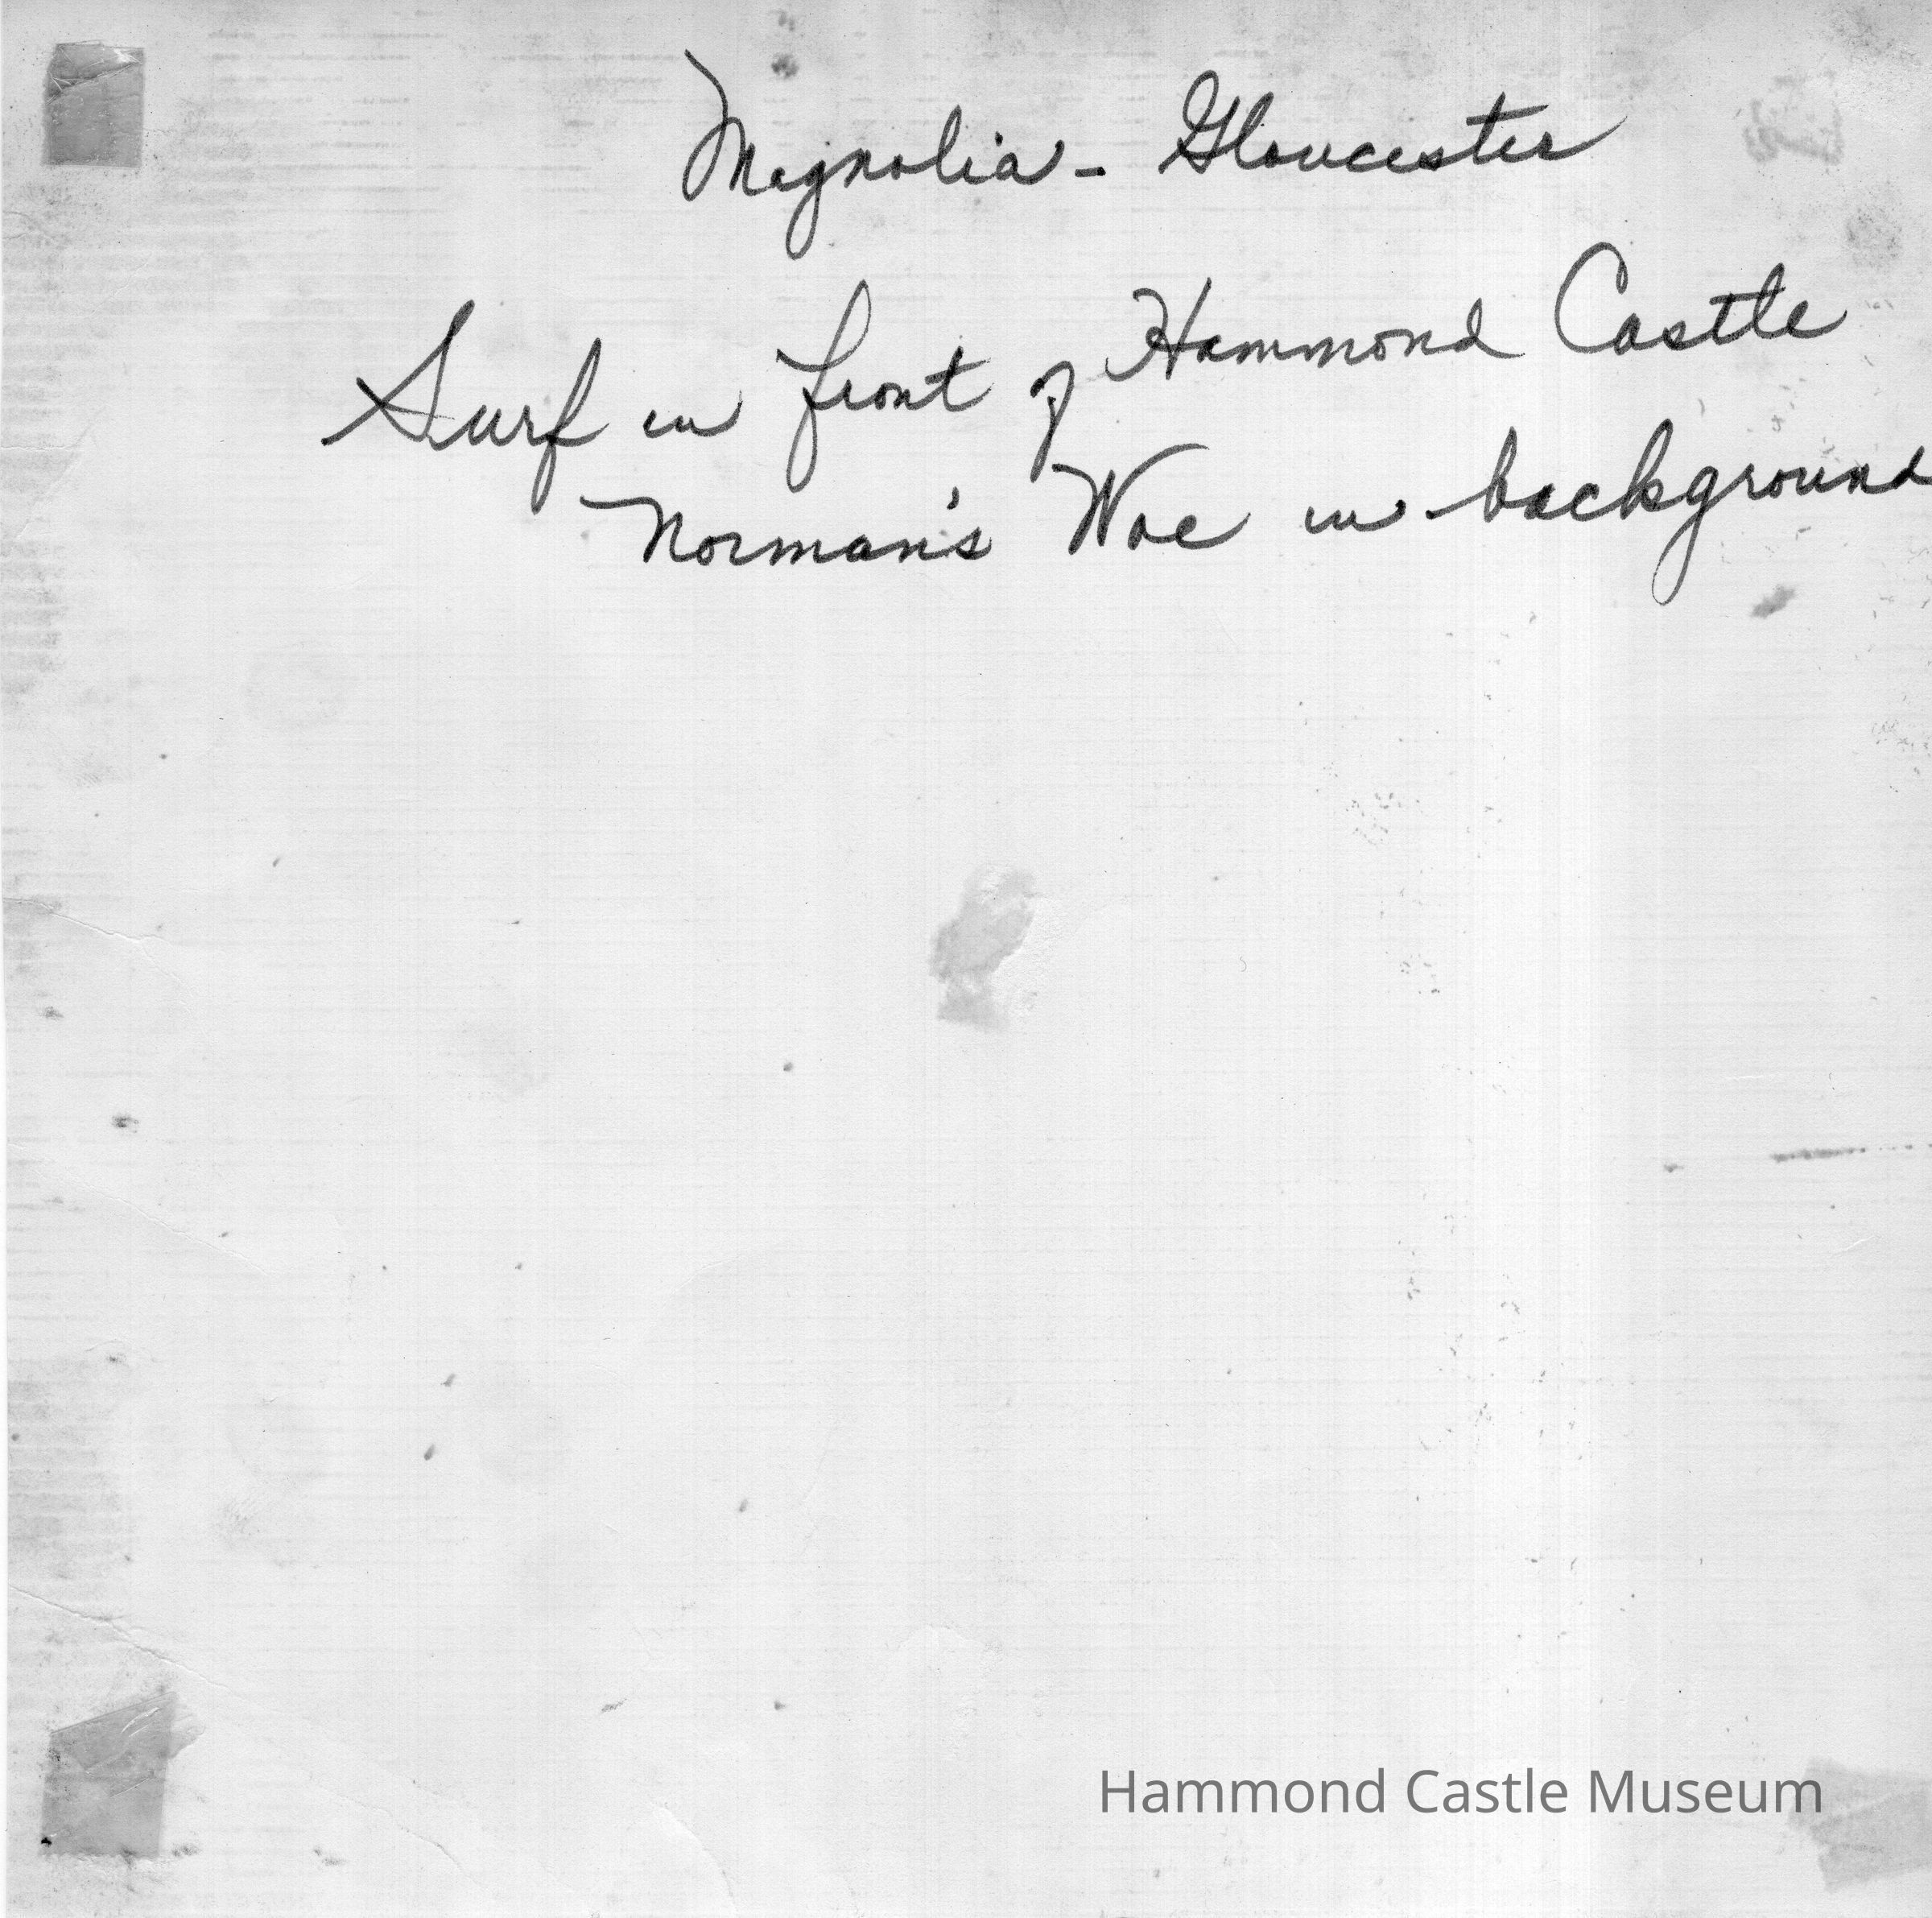 Magnolia - Gloucester
Surf in front of Hammond Castle
Norman's Woe in background
Hammond Castle Museum